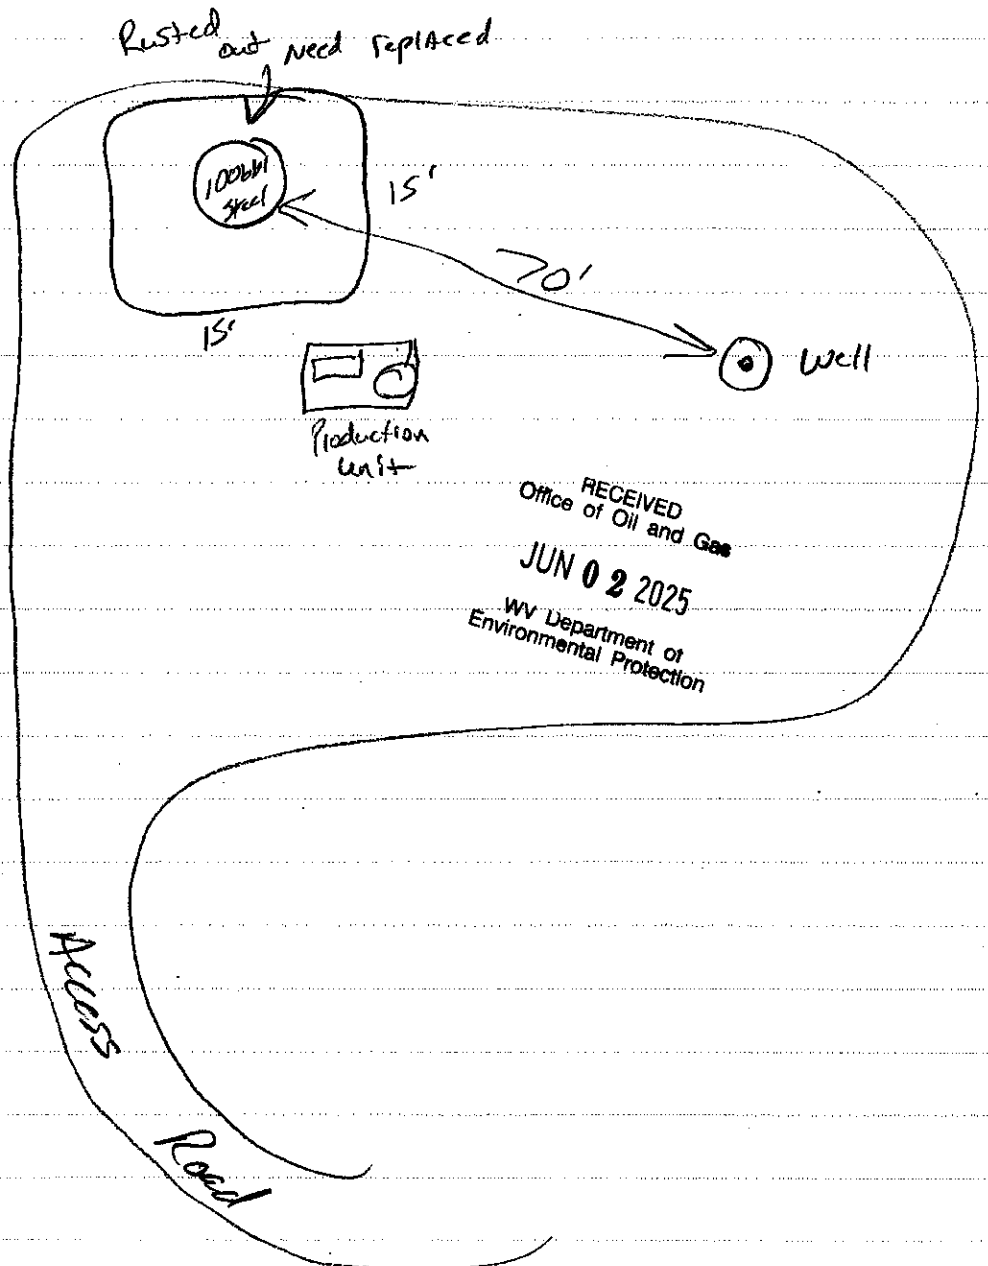 Rusted out need replaced
100bbl
steel
15'
70'
15'
Well
Production
unit
RECEIVED
Office of Oil and Gas
JUN 02 2025
WV Department of
Environmental Protection
Access
Road